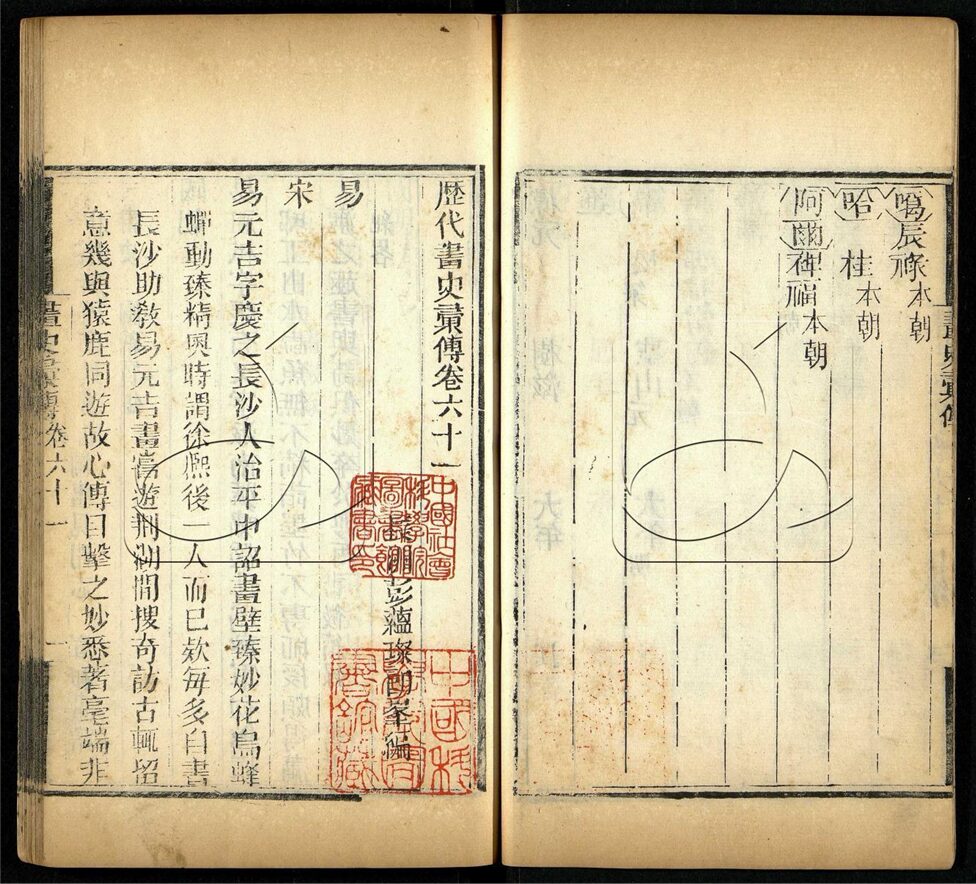 噶辰祿本朝
哈 桂本朝
阿爾稗福本朝
畫史彙傳
歷代畫史彙傳卷六十一
長洲彭蘊璨朗峯編
易
宋
易元吉字慶之長沙人治平中詔畫壁臻妙花鳥蜂
蟬動臻精奧時謂徐熙後一人而已欵每多自書
長沙助教易元吉畫嘗遊荆湖間搜奇訪古輒留
意幾與猿鹿同遊故心傳目擊之妙悉著毫端非
畫史彙傳卷六十一
一
中國社會
科學院
圖書館
藏書印
中國科